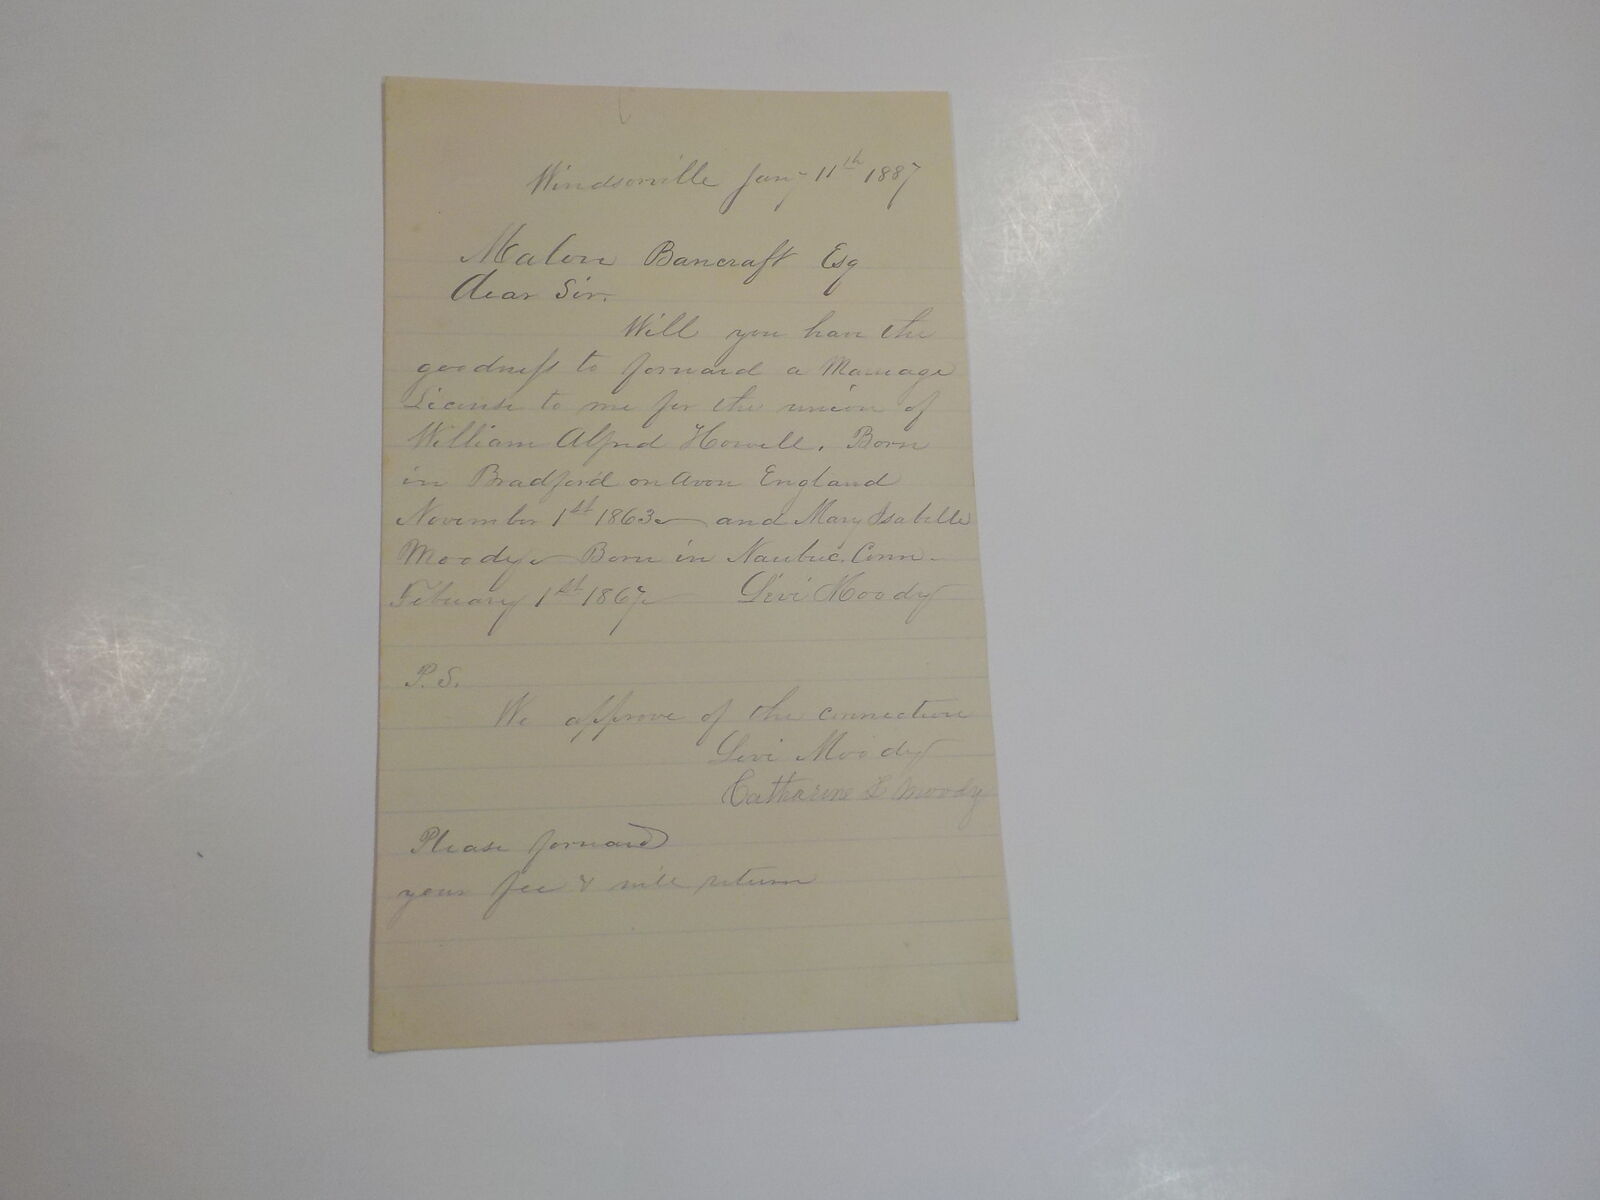 Windsorville Jany 11th 1887
Malon Bancraft Esq
Dear Sir.
Will you have the
goodness to forward a Marriage
License to me for the union of
William Alfred Howell. Born
in Bradford on Avon England
November 1st 1863 and Mary Isabelle
Moody Born in Naubuc. Conn
Febuary 1st 1867 Levi Moody
P.S.
We approve of the connection
Levi Moody
Catharine L Moody
Please forward
your fee & will return